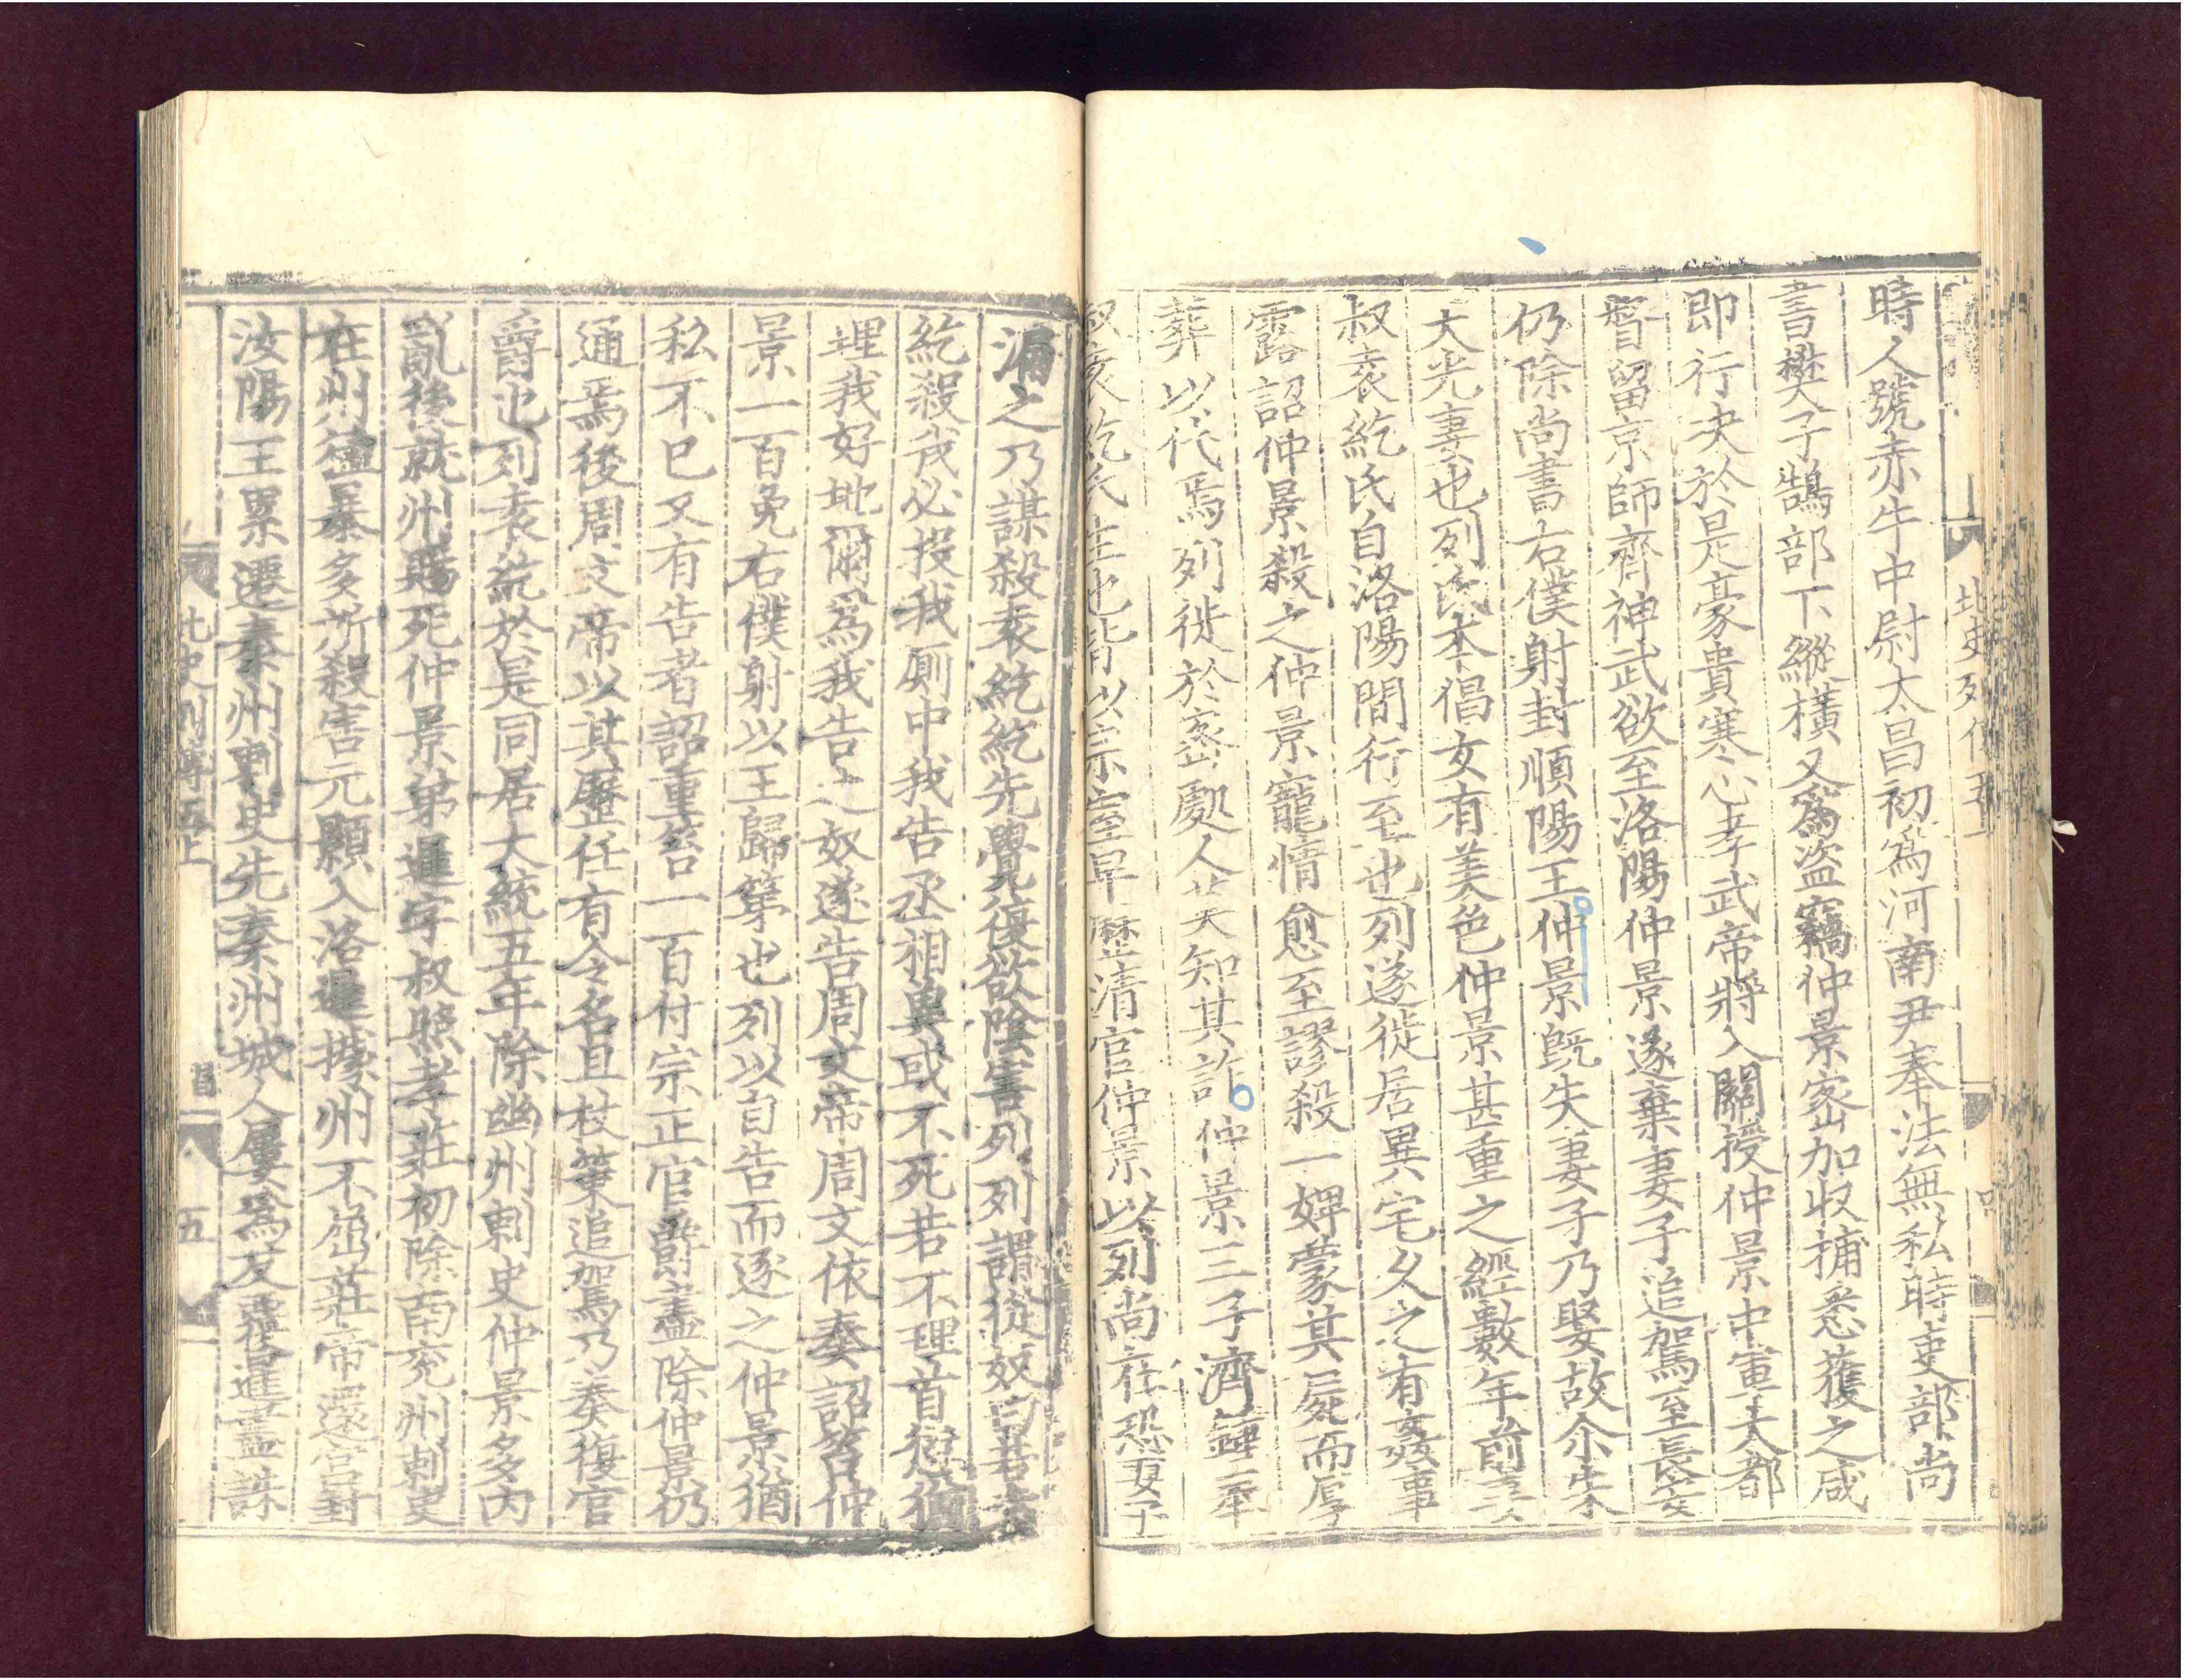 時人號赤牛中尉太昌初爲河南尹奉法無私時吏部尚
書樊子鵠部下縱橫又爲盜竊仲景密加收捕悉獲之咸
即行决於是豪貴寒心孝武帝將入關授仲景中軍大都
督留京師齊神武欲至洛陽仲景遂棄妻子追駕至長安
仍除尚書右僕射封順陽王仲景旣失妻子乃娶故尒朱
大光妻也列氏本倡女有美色仲景甚重之經數年前妻
叔袁紇氏自洛陽間行至也列遂徙居異宅久之有姦事
露詔仲景殺之仲景寵情愈至謬殺一婢蒙其屍而厚
葬以代焉列徙於密處人莫知其詐仲景三子濟鍾奉
叔袁紇氏生也皆以宗室早歷清官仲景以列尚在恐妻子
漏之乃謀殺袁紇紇先覺復欲陰害列列謂從奴曰若袁
紇殺我必投我厠中我告丞相冀或不死若不理首愆猶
埋我好地爾爲我告之奴遂告周文帝周文依奏詔笞仲
景一百免右僕射以王歸第也列以自告而逐之仲景猶
私不巳又有告者詔重笞一百付宗正官爵盡除仲景仍
通焉後周文帝以其歷任有令名且杖策追駕乃奏復官
爵也列袁紇於是同居大統五年除幽州刺史仲景多內
亂後就州賜死仲景弟暹字叔照孝莊初除南兗州刺史
在州猛暴多所殺害元顥入洛暹據州不屈莊帝還宮封
汝陽王累遷秦州刺史先秦州城人屢爲反覆暹盡誅
北史列傳五上
五